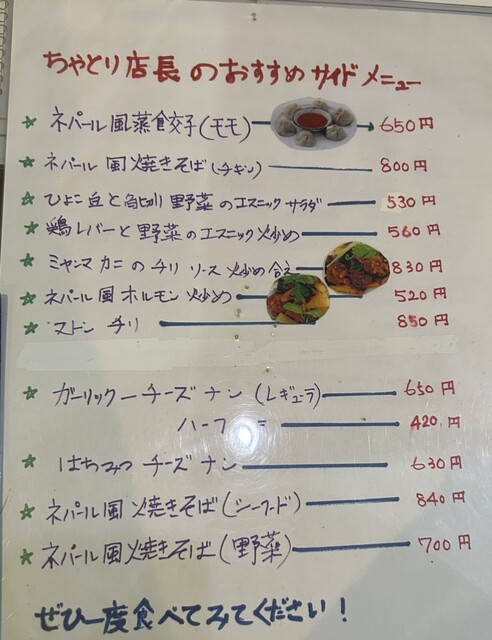 ちゃとり店長のおすすめサイドメニュー
★ ネパール風蒸餃子(モモ) 650円
★ ネパール風焼きそば(チキン) 800円
★ ひよこ豆と角切り野菜のエスニックサラダ 530円
★ 鶏レバーと野菜のエスニック炒め 560円
★ ミャンマカニのチリソース炒め合え 830円
★ ネパール風ホルモン炒め 520円
★ マトンチリ 850円
★ ガーリックーチーズナン(レギュラ) 650円
ハーフ = 420円
★ はちみつチーズナン 630円
★ ネパール風焼きそば(シーフード) 840円
★ ネパール風焼きそば(野菜) 700円
ぜひ一度食べてみてください!